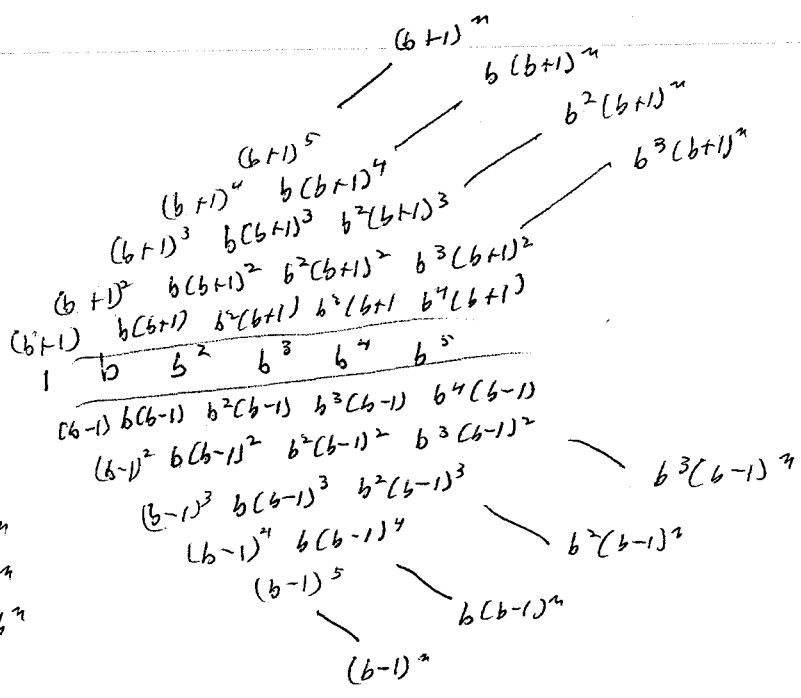 (b+1)ⁿ
b(b+1)ⁿ
b²(b+1)ⁿ
b³(b+1)ⁿ
(b+1)⁵
(b+1)⁴ b(b+1)⁴
(b+1)³ b(b+1)³ b²(b+1)³
(b+1)² b(b+1)² b²(b+1)² b³(b+1)²
(b+1) b(b+1) b²(b+1) b³(b+1 b⁴(b+1)
1 b b² b³ b⁴ b⁵
(b-1) b(b-1) b²(b-1) b³(b-1) b⁴(b-1)
(b-1)² b(b-1)² b²(b-1)² b³(b-1)²
(b-1)³ b(b-1)³ b²(b-1)³
b³(b-1)ⁿ
(b-1)⁴ b(b-1)⁴
b²(b-1)ⁿ
(b-1)⁵
b(b-1)ⁿ
(b-1)ⁿ